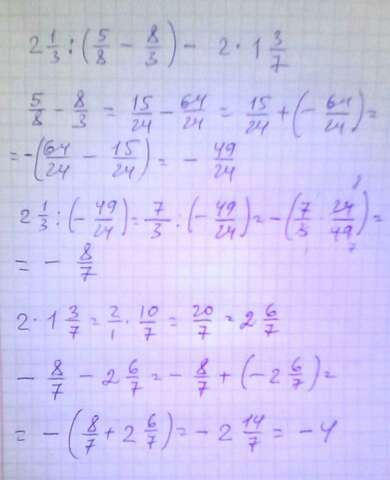 2 1/3 : (5/8 − 8/3) − 2 · 1 3/7
5/8 − 8/3 = 15/24 − 64/24 = 15/24 + (− 64/24) =
= −(64/24 − 15/24) = − 49/24
2 1/3 : (− 49/24) = 7/3 : (− 49/24) = −(7/3 · 24/49) =
= − 8/7
2 · 1 3/7 = 2/1 · 10/7 = 20/7 = 2 6/7
− 8/7 − 2 6/7 = − 8/7 + (−2 6/7) =
= −(8/7 + 2 6/7) = −2 14/7 = −4